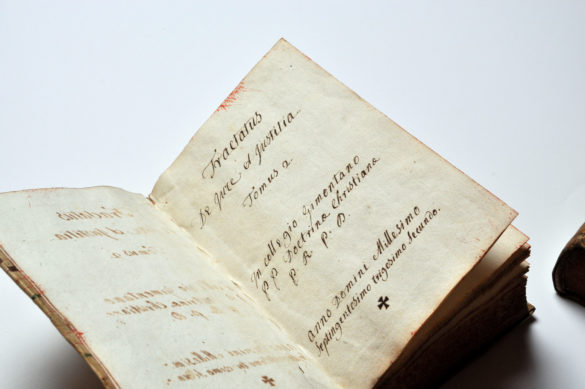 Tractatus
De Jure et Justitia
Tomus 2.
In collegio Gimontano
P.P. Doctrinæ Christianæ
P. R. P. D.
Anno Domini Millesimo
Septingentesimo trigesimo secundo.